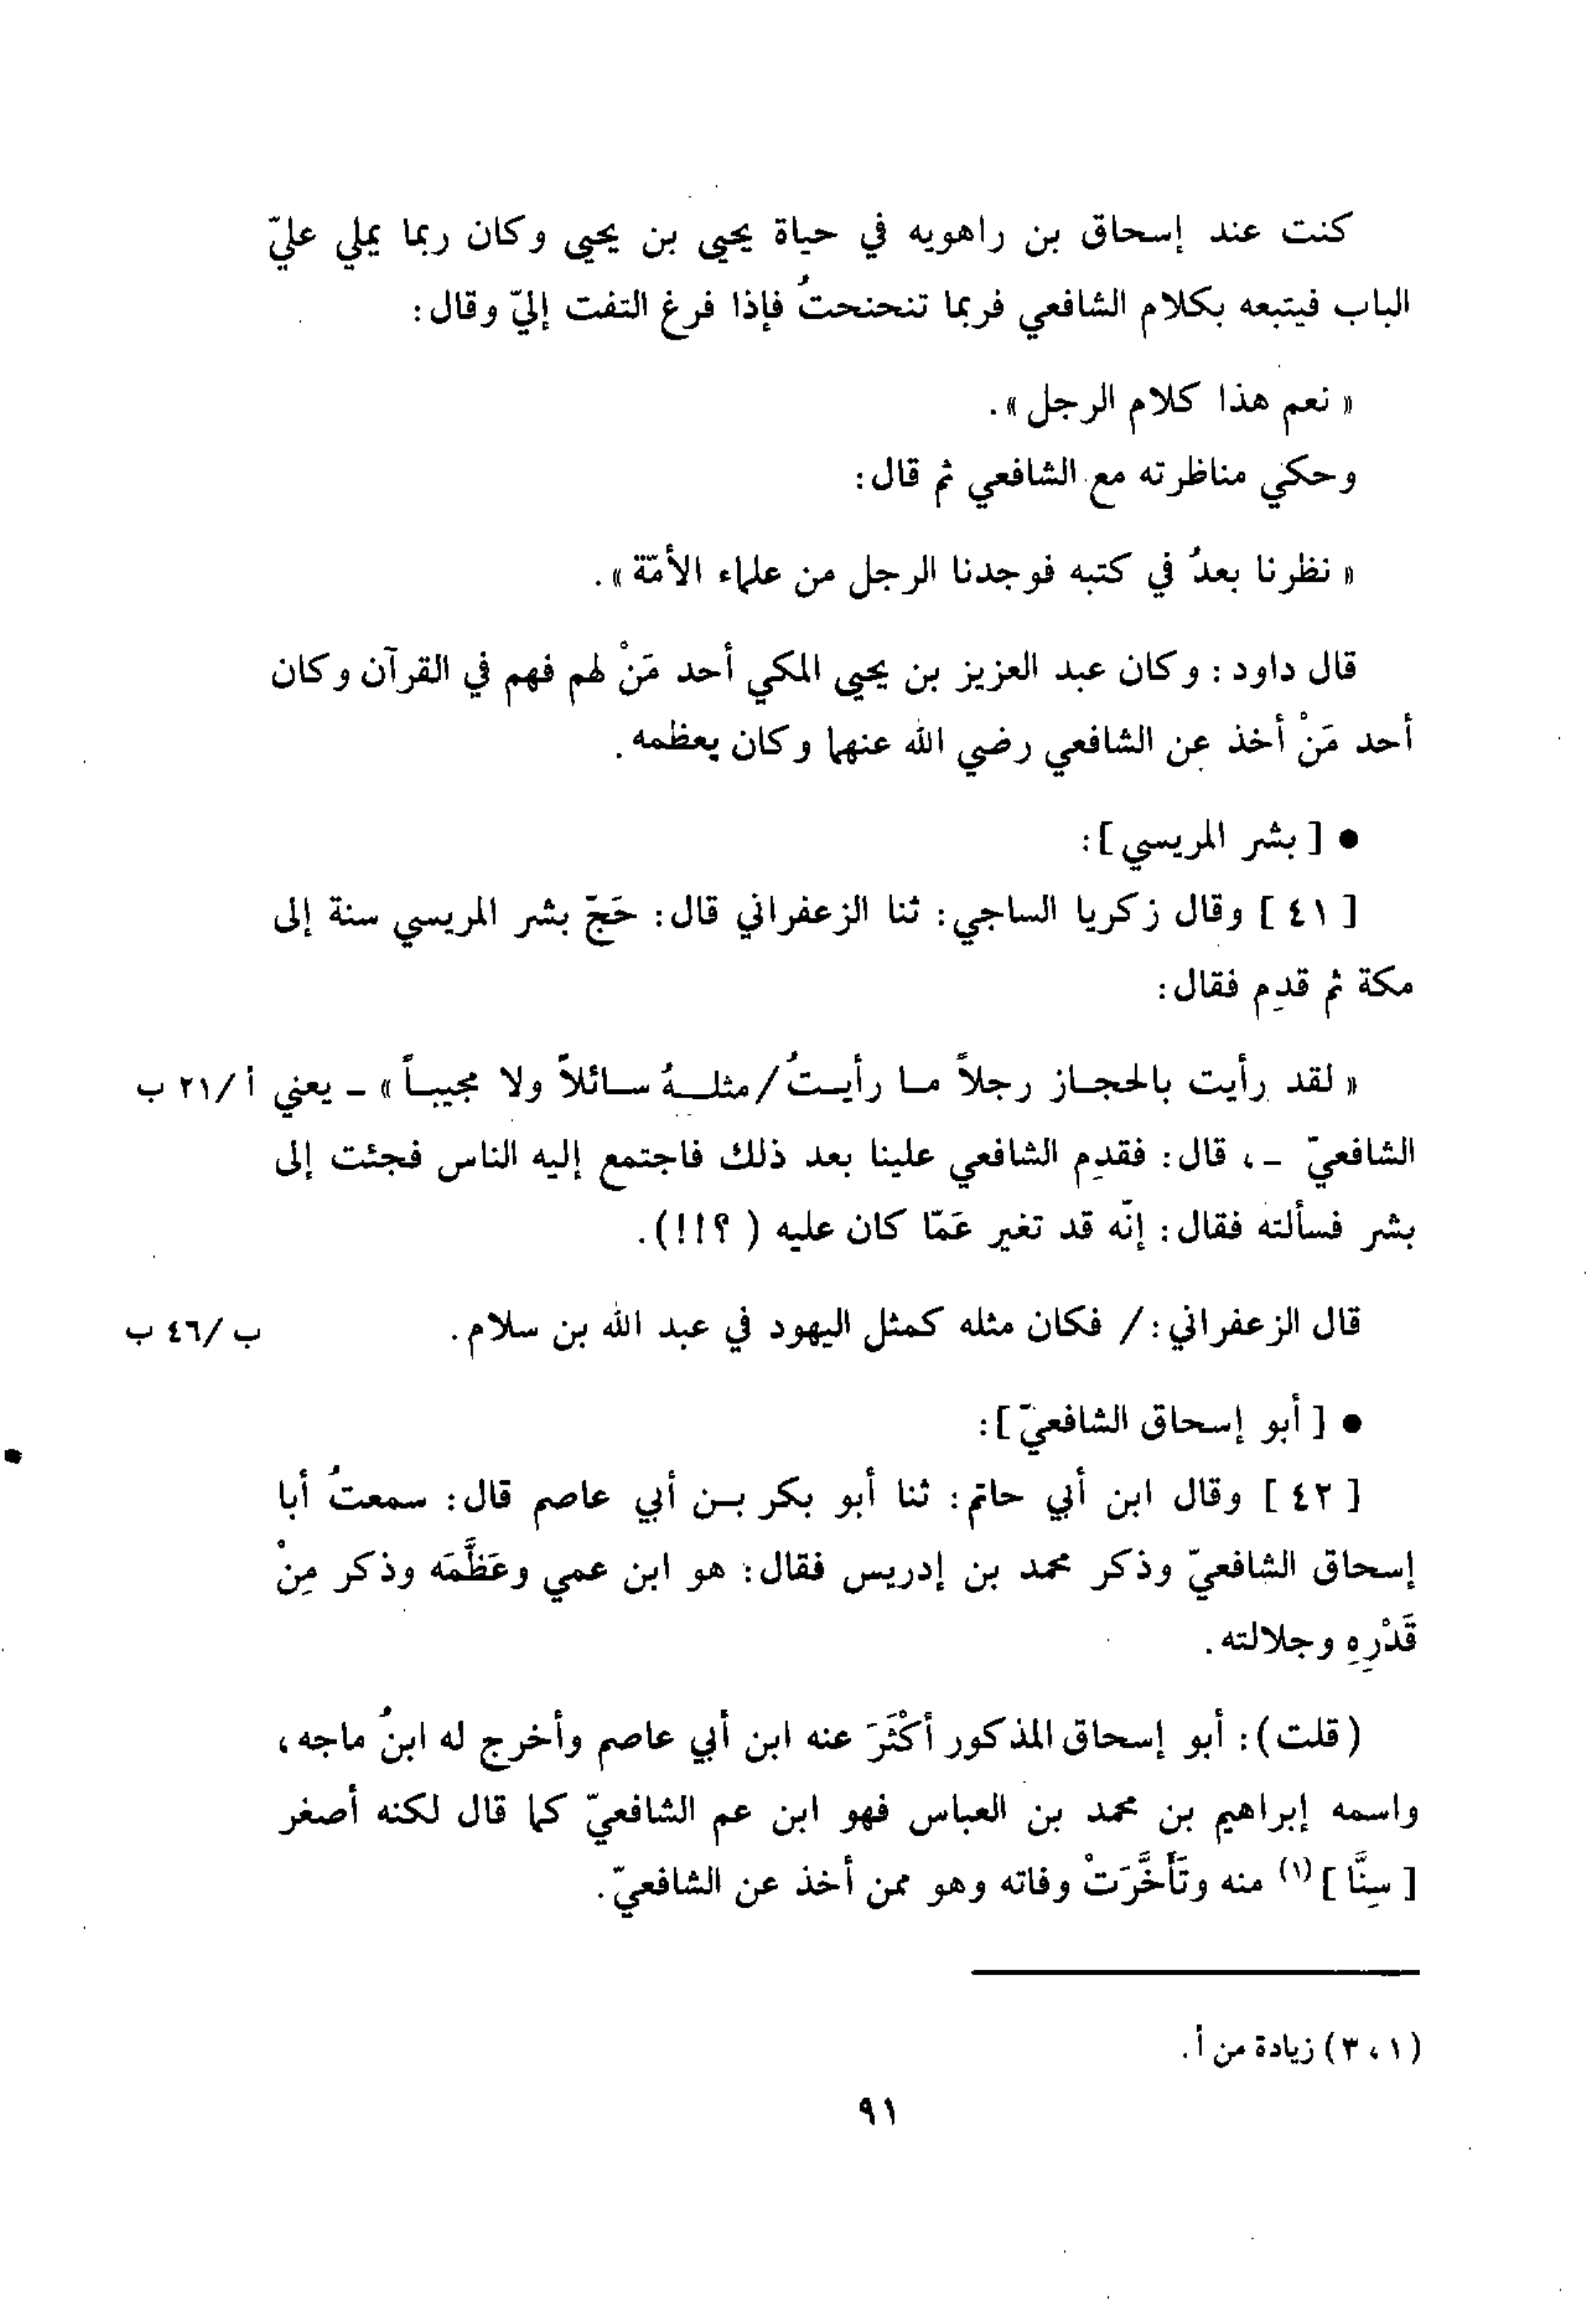 كنت عند إسحاق بن راهويه في حياة يحيى بن يحيى وكان ربما يملي عليّ
الباب فيتبعه بكلام الشافعي فربما تنحنحتُ فإذا فرغ التفت إليّ وقال:
« نعم هذا كلام الرجل ».
وحكي مناظرته مع الشافعي ثم قال:
« نظرنا بعدُ في كتبه فوجدنا الرجل من علماء الأمّة ».
قال داود: وكان عبد العزيز بن يحيى المكي أحد مَنْ لهم فهم في القرآن وكان
أحد مَنْ أخذ عن الشافعي رضي الله عنهما وكان يعظمه.
● [ بشر المريسي ]:
[ ٤١ ] وقال زكريا الساجي: ثنا الزعفراني قال: حَجّ بشر المريسي سنة إلى
مكة ثم قدِم فقال:
« لقد رأيت بالحجاز رجلاً ما رأيتُ/ مثلهُ سائلاً ولا مجيباً » ـ يعني أ/٢١ ب
الشافعيّ ـ، قال: فقدِم الشافعي علينا بعد ذلك فاجتمع إليه الناس فجئت إلى
بشر فسألته فقال: إنّه قد تغير عَمّا كان عليه ( ؟!! ).
قال الزعفراني: / فكان مثله كمثل اليهود في عبد الله بن سلام. ب/٤٦ ب
● [ أبو إسحاق الشافعيّ ]:
[ ٤٢ ] وقال ابن أبي حاتم: ثنا أبو بكر بن أبي عاصم قال: سمعتُ أبا
إسحاق الشافعيّ وذكر محمد بن إدريس فقال: هو ابن عمي وعَظَّمَه وذكر مِنْ
قَدْرِهِ وجلالته.
(قلت): أبو إسحاق المذكور أكْثَرَ عنه ابن أبي عاصم وأخرج له ابنُ ماجه،
واسمه إبراهيم بن محمد بن العباس فهو ابن عم الشافعيّ كما قال لكنه أصغر
[ سِنَّا ] (١) منه وتَأَخَّرَتْ وفاته وهو ممن أخذ عن الشافعيّ.
(١، ٣) زيادة من أ.
٩١